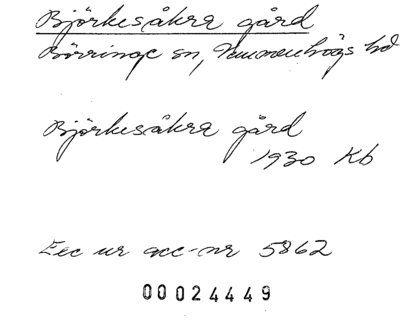 Björkesåkra gård
Börringe sn, Vemmenhögs hd
Björkesåkra gård
1930 Kb
Exc ur acc-nr 5862
00024449